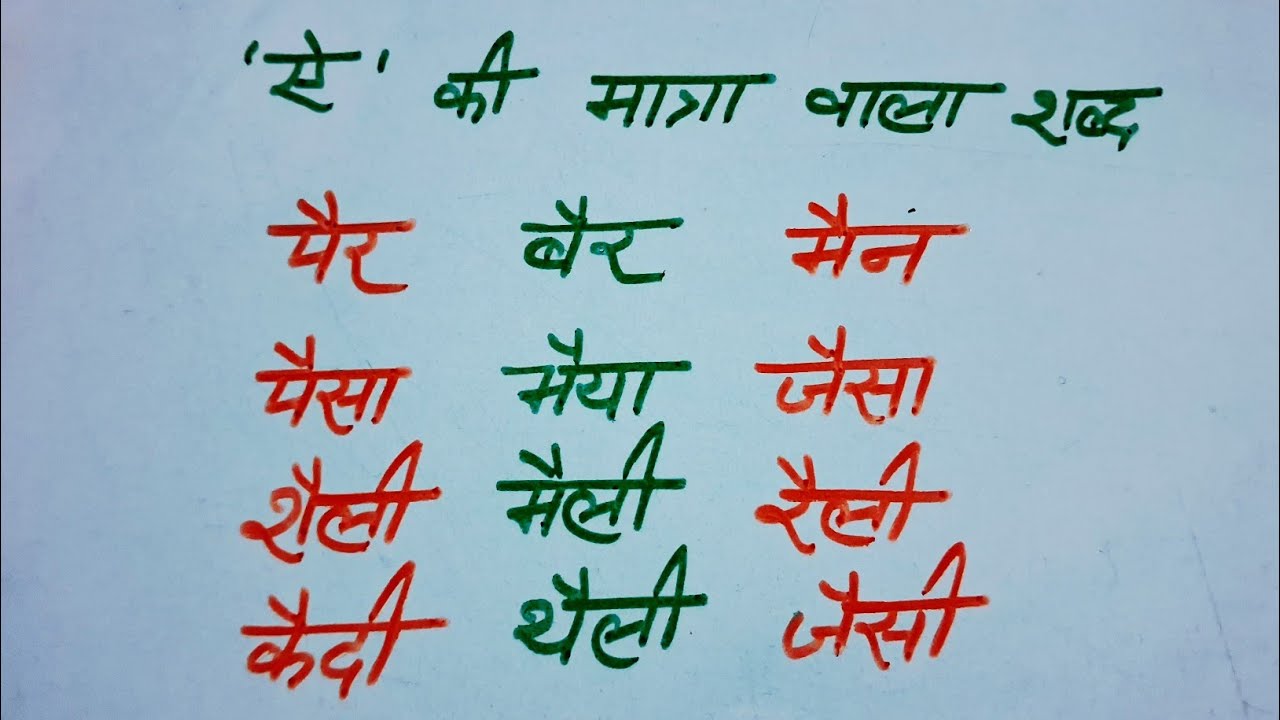 'ऐ' की मात्रा वाला शब्द
पैर बैर मैन
पैसा मैया जैसा
शैली मैली रैली
कैदी थैली जैसी